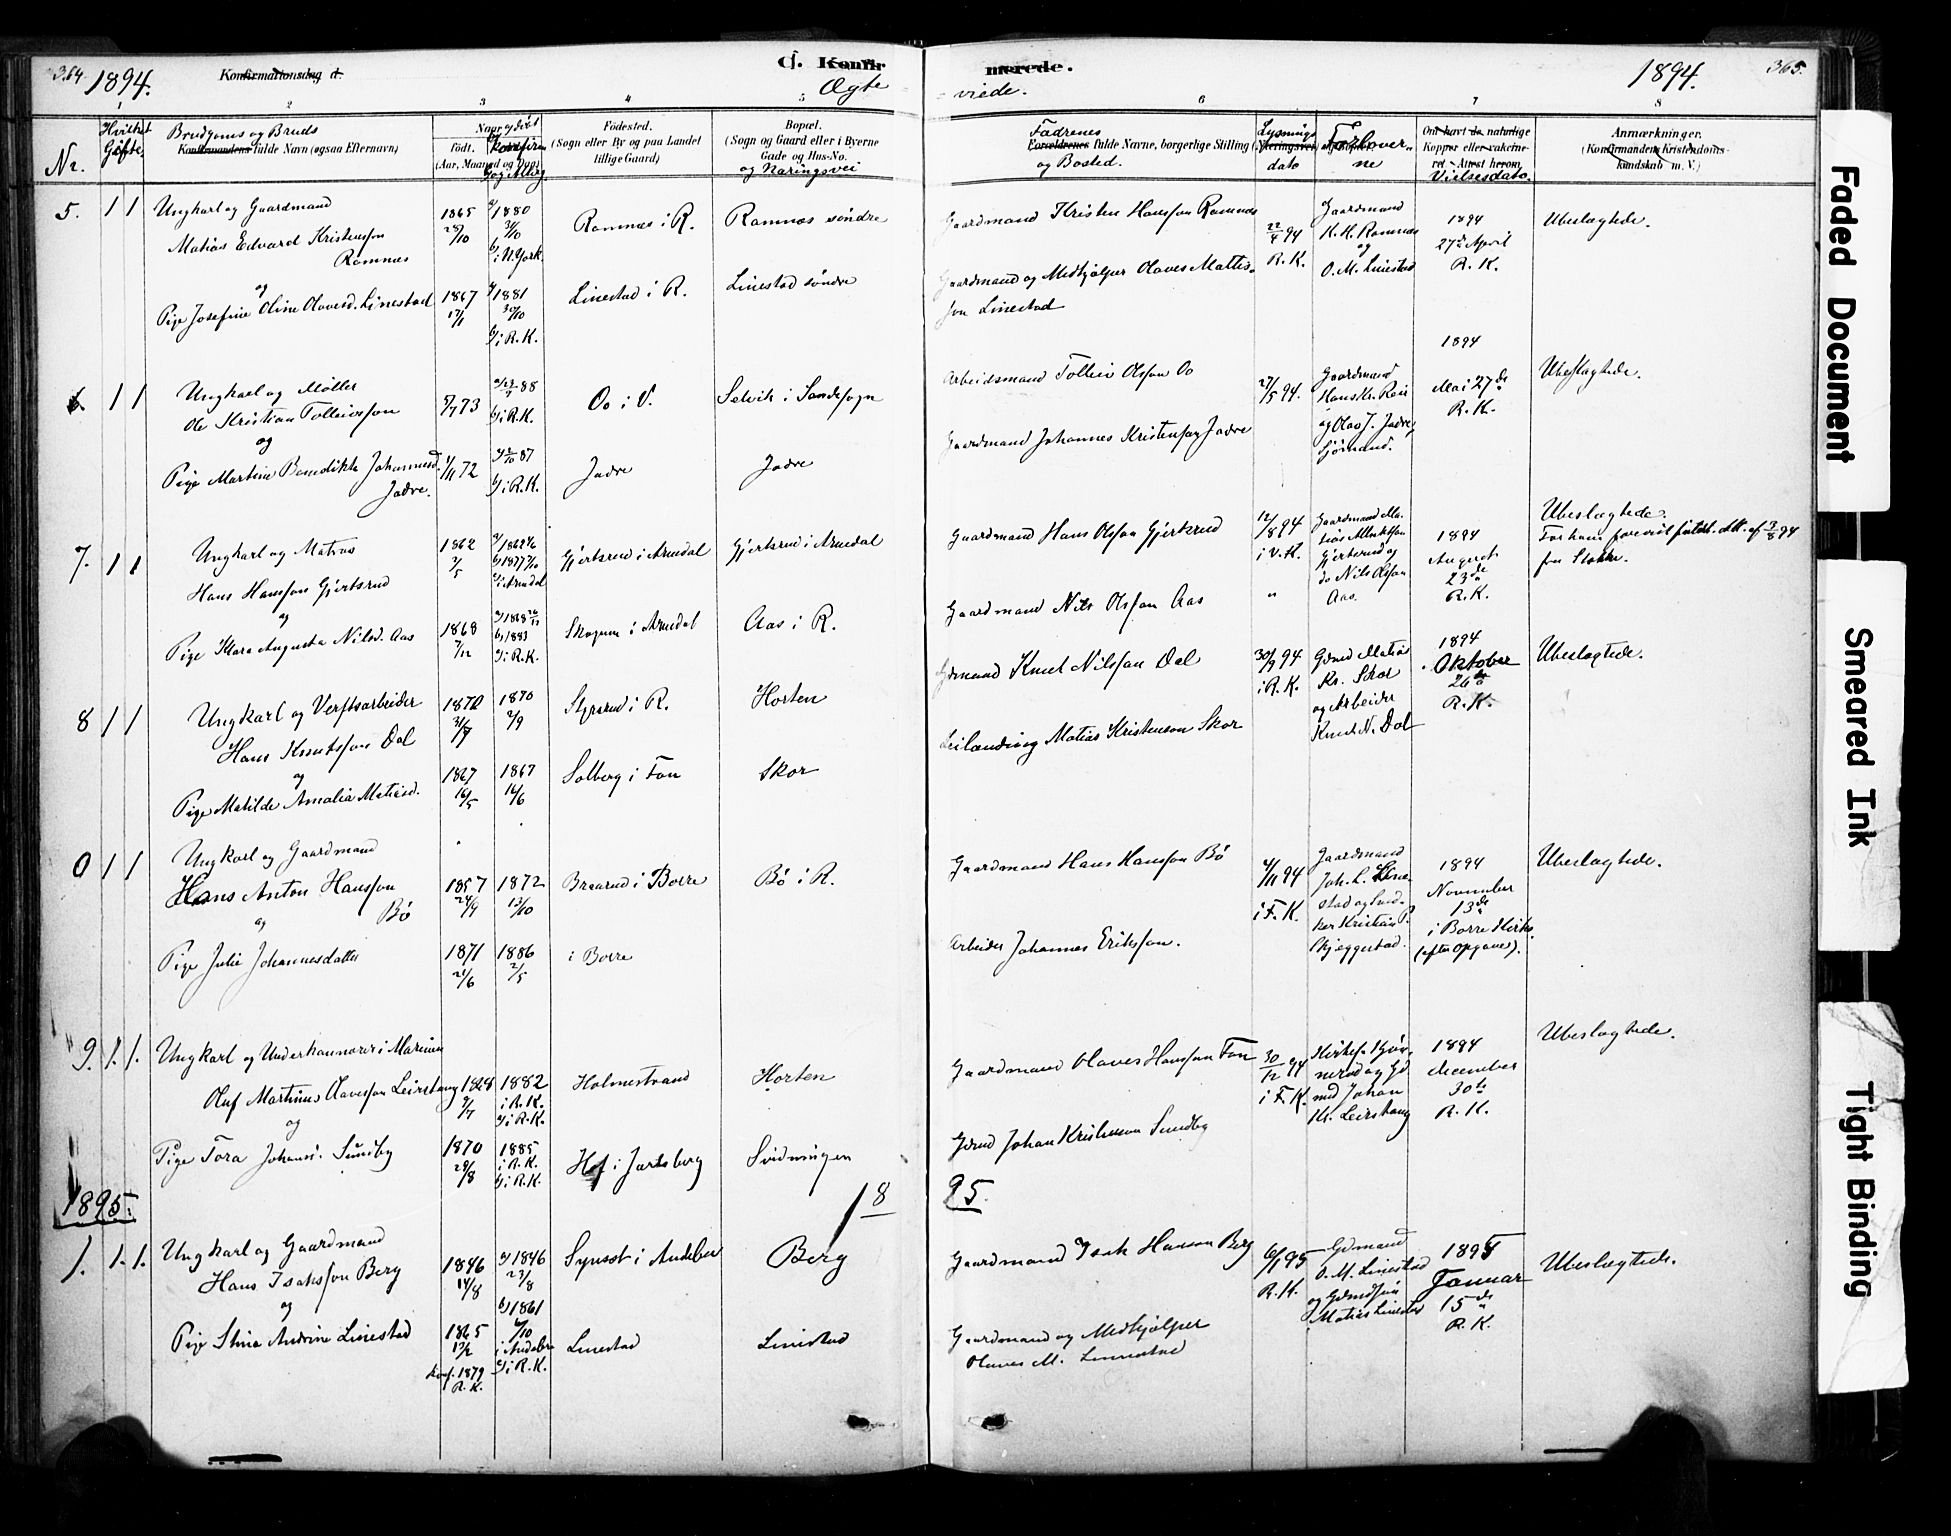 364. 1894. Konfirmationsdag d. C. Konfir- merede. 1894. 365.
Ægte- viede.
1 2 3 4 5 6 7 8
Nr. Hvilket Gifte.
Brudgoms og Bruds
Konfirmandens fulde Navn (ogsaa Efternavn)
Født.
(Aar, Maaned og Dag)
Fødested.
(Sogn eller By og paa Landet tillige Gaard)
Bopæl.
(Sogn og Gaard eller i Byerne Gade og Hus-No.
og Næringsvei
Fædrenes
Forældrenes fulde Navne, borgerlige Stilling
og Bosted.
Lysnings dato
Forlovere
Om havt de naturlige Kopper eller vakcineret - Attest herom
Vielsesdato.
Anmærkninger.
(Konfirmandens Kristendomskundskab m. V.)
5. 1 1
Ungkarl og Gaardmand
Matias Edvard Kristensson
Ramnæs
1865
25/10
a/ 1880
3/10
b/ i N. York.
Ramnæs i R.
Ramnæs søndre
Gaardmand Kristen Hansson Ramnæs
22/4 94
R. K.
Gaardmand
K. H. Ramnæs
og
O. M. Linestad
1894
27de April
R. K.
Ubeslægtede.
og
Pige Josefine Oline Olavesd. Linestad
1867
17/1
a/ 1881
30/10
b/ i R. K.
Linestad i R.
Linestad søndre
Gaardmand og Medhjælper Olaves Mattis-
son Linestad
6. 1 1
Ungkarl og Møller
Ole Kristian Tolleivsson
7/7 73
88
b/ i R. K.
Oo i V.
Selvik i Sandesogn
Arbeidsmand Tolleiv Olsson Oo
27/5 94.
Gaardmand
Hans Kr. Reir
og Olaf J. Jadre,
Sjømand.
1894
Mai 27de
R. K.
Ubeslægtede.
og
Pige Martine Benedikte Johannesd.
Jadre.
1/11 72
87
b/ i R. K.
Jadre
Jadre
Gaardmand Johannes Kristensson Jadre
7. 1 1
Ungkarl og Matros
Hans Hansson Gjertsrud
1862
2/5
i Arendal
Gjertsrud i Arndal
Gjertsrud i Arndal
Gaardmand Hans Olsson Gjertsrud
12/8 94
i V. K.
Gaardmand Ma-
Gjertsrud og
do Nils Olsson
Aas.
1894
August
23de
R. K.
Ubeslægtede.
fra Stokke.
og
Pige Klara Augusta Nilsd. Aas
1868
7/12
a/ 1868
b/ 1883
i R. K.
Skogum i Arndal
Aas i R.
Gaardmand Nils Olsson Aas
"
8 1 1
Ungkarl og Verftsarbeider
Hans Knutsson Dal
1870
31/7
1870
2/9
Styrsrud i R.
Horten
Gdmand Knut Nilsson Dal
30/9 94
i R. K.
Gdmd Matias
Kr. Skor
og Arbeider
Knut N. Dal
1894
Oktober
26de
R. K.
Ubeslægtede.
og
Pige Matilde Amalia Matiasd.
1867
16/5
1867
16/6
Solberg i Fon
Skor
Leilænding Matias Kristenson Skor
0 1 1
Ungkarl og Gaardmand
Hans Anton Hansson
Bø
1857
24/9
1872
13/10
Braarud i Borre
Bø i R.
Gaardmand Hans Hansson Bø
4/11 94
i F. K.
Gaardmand
Joh. L. Line-
stad og Sned-
ker Kristian P.
Skjeggestad.
1894
November
13de
i Borre Kirke
(efter Opgave).
Ubeslægtede.
og
Pige Julie Johannesdatter
1871
21/6
1886
2/5
i Borre
Arbeider Johannes Eriksson.
9. 1. 1.
Ungkarl og Underkanoner i Marinen
Oluf Martinus Olavesson Leirstang
1868
9/7
1882
i R. K.
b/ i R. K.
Holmestrand
Horten
Gaardmand Olaves Hansson Fon
30/12 94
i F. K.
Kirkes.
nerød og Gd
md Johan
Kr. Leirstang
1894
December
30te
R. K.
Ubeslægtede.
og
Pige Tora Johans. Sundby
1870
28/8
1885
i R. K.
b/ i R. K.
Hof i Jarlsberg
Svidningen
Gdmd Johan Kristenson Sundby
1895. 18 95.
1. 1. 1.
Ungkarl og Gaardmand
Hans Isaksson Berg
1846
14/8
a/ 1846
23/8
b/ 1861
6/10
i Andebu
i Andebu
Berg
Gaardmand Isak Hanson Berg
6/1 95
R. K.
Gdmand
O. M. Linestad
og Gdmdsøn
Matias Linestad
1895
Januar
15de
R. K.
Ubeslægtede.
og
Pige Stina Andrine Linestad
1865
13/2
Konf. 1879
R. K.
b/ i R. K.
Linestad
Linestad
Gaardmand og Medhjælper
Olaves M. Linnestad
Faded Document
Smeared Ink
Tight Binding